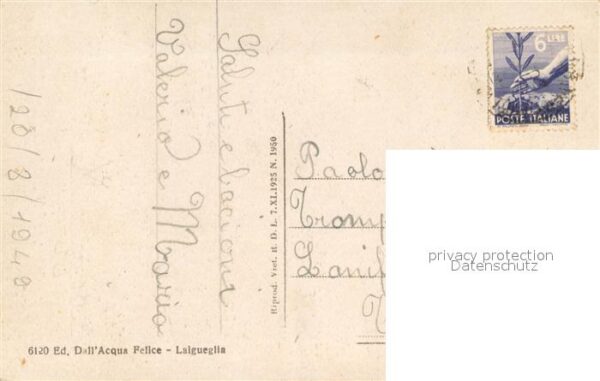 6 LIRE
POSTE ITALIANE
Saluti e bacioni
Valerio e Maria
Riprod. Viet. R. D. L. 7.XI.1925 N. 1950
Paolo
privacy protection
Datenschutz
6120 Ed. Dall'Acqua Felice - Laigueglia